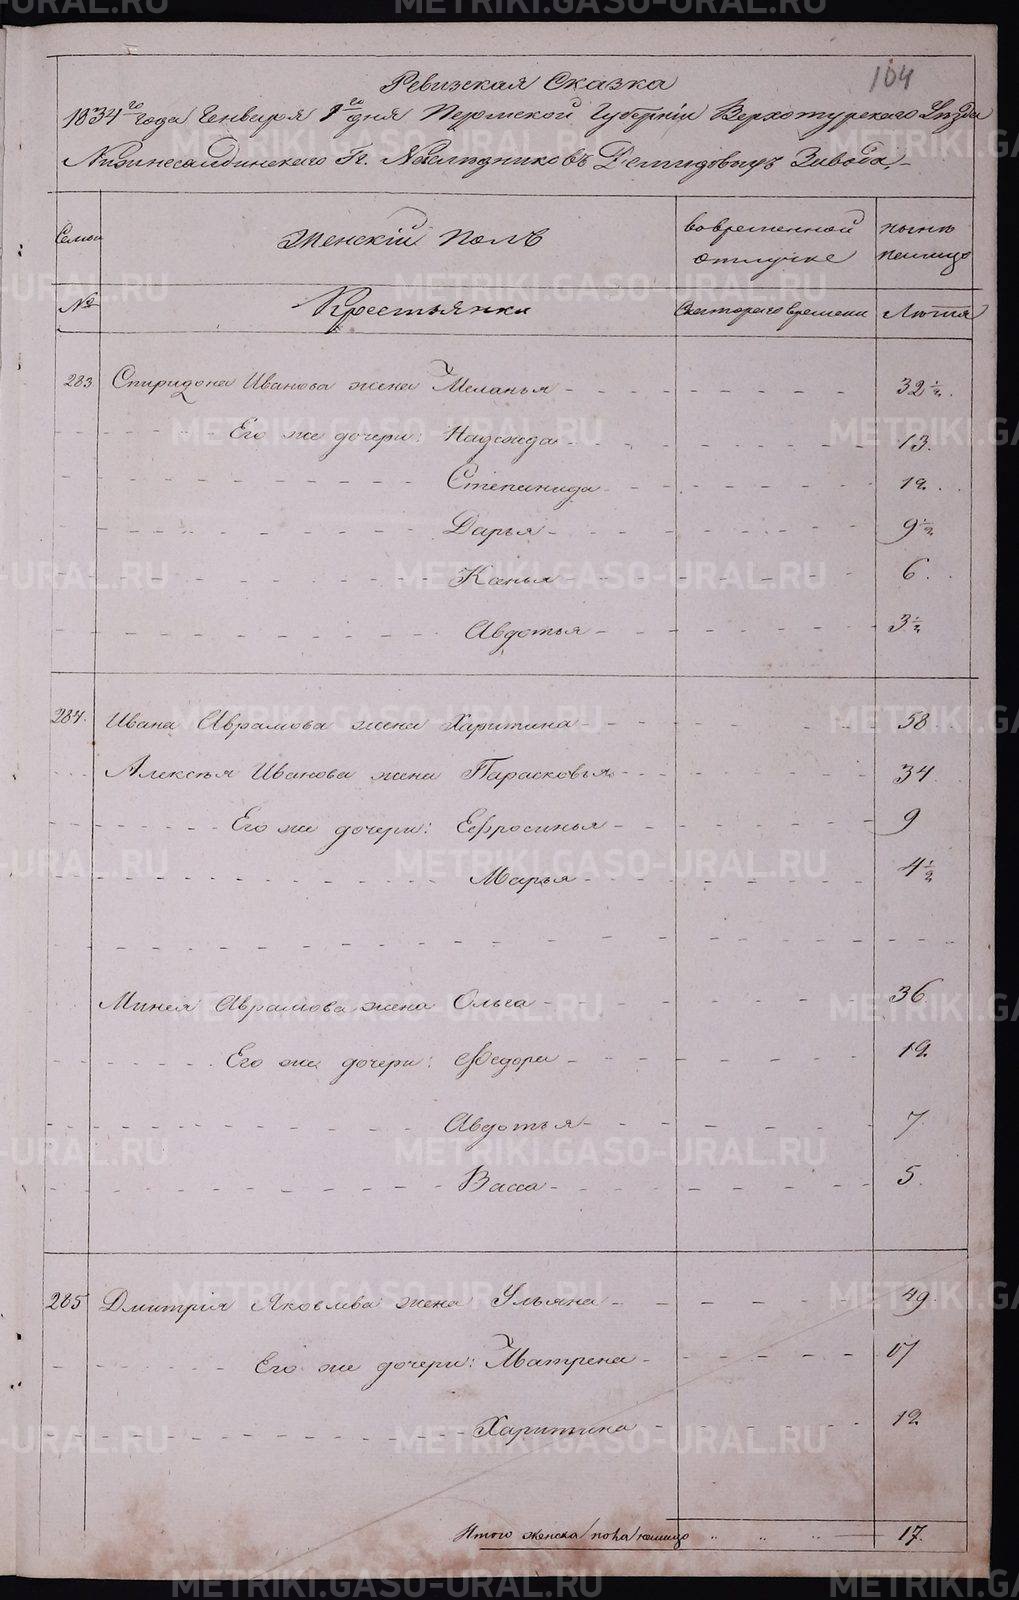 104
Ревизская Сказка
1834го года Генваря 1го дня Пермской Губерніи Верхотурского Уѣзда
Нижнесалдинского Гг. Наслѣдниковъ Демидовыхъ Завода.
Семьи
Женскій полъ
во временной отлучке
нынѣ налицо
№
Крестьянки
Съ котораго времени
Лѣта
283 Спиридона Иванова жена Меланья 32 ½.
Его же дочери: Надежда 13.
Степанида 12.
Дарья 9 ½
Ксенья 6.
Авдотья 3 ½
284. Ивана Аврамова жена Харитина 58
Алексѣя Иванова жена Парасковья 34
Его же дочери: Ефросинья 9
Марья 4 ½
Минея Аврамова жена Ольга 36
Его же дочери: Федора 12
Авдотья 7
Васса 5.
285 Дмитрія Яковлева жена Ульяна 49
Его же дочери: Матрена 17
Харитина 12
Итого женска пола налицо " " " 17.
METRIKI.GASO-URAL.RU